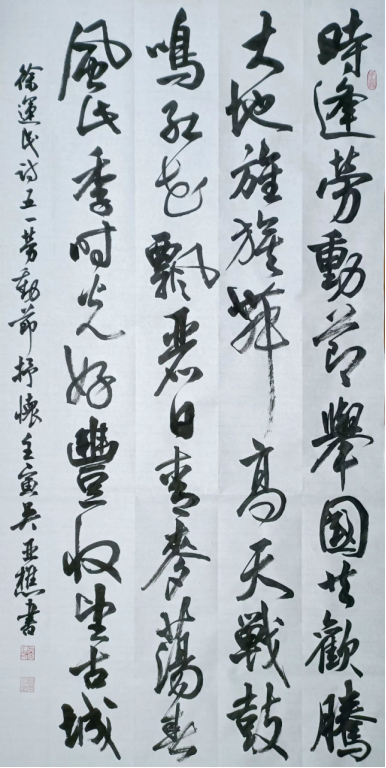 時逢勞動節舉國共歡騰
大地旌旗舞高天戰鼓
鳴紅花飄日青麥蕩春
風此季时光好豐收望古城
徐運民诗五一劳動節抒懷壬寅吴亚樵書